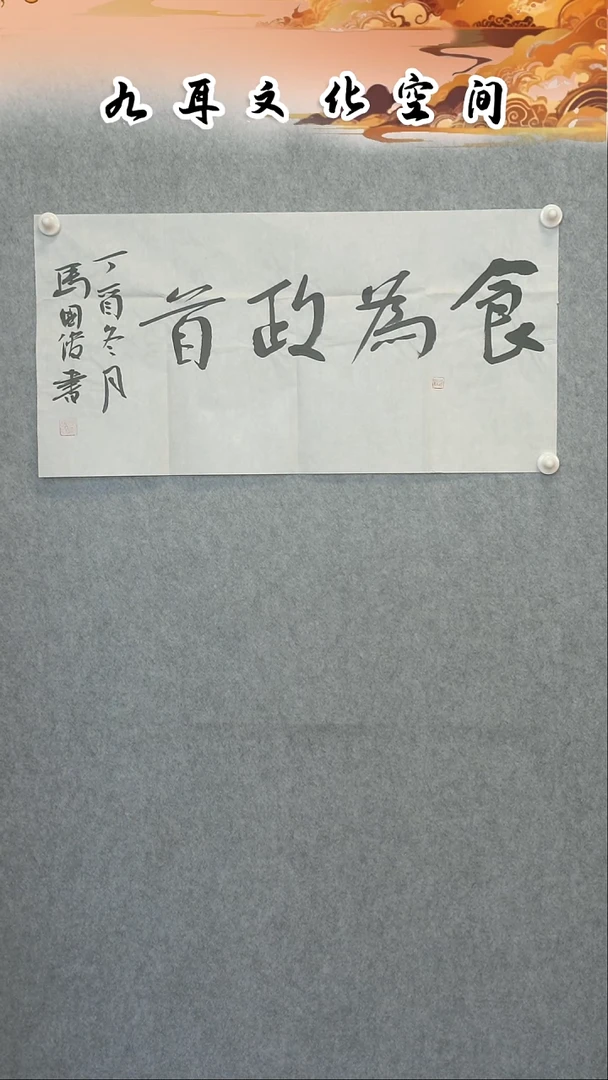 九耳文化空间
食為政首
丁酉冬月
馬國 書